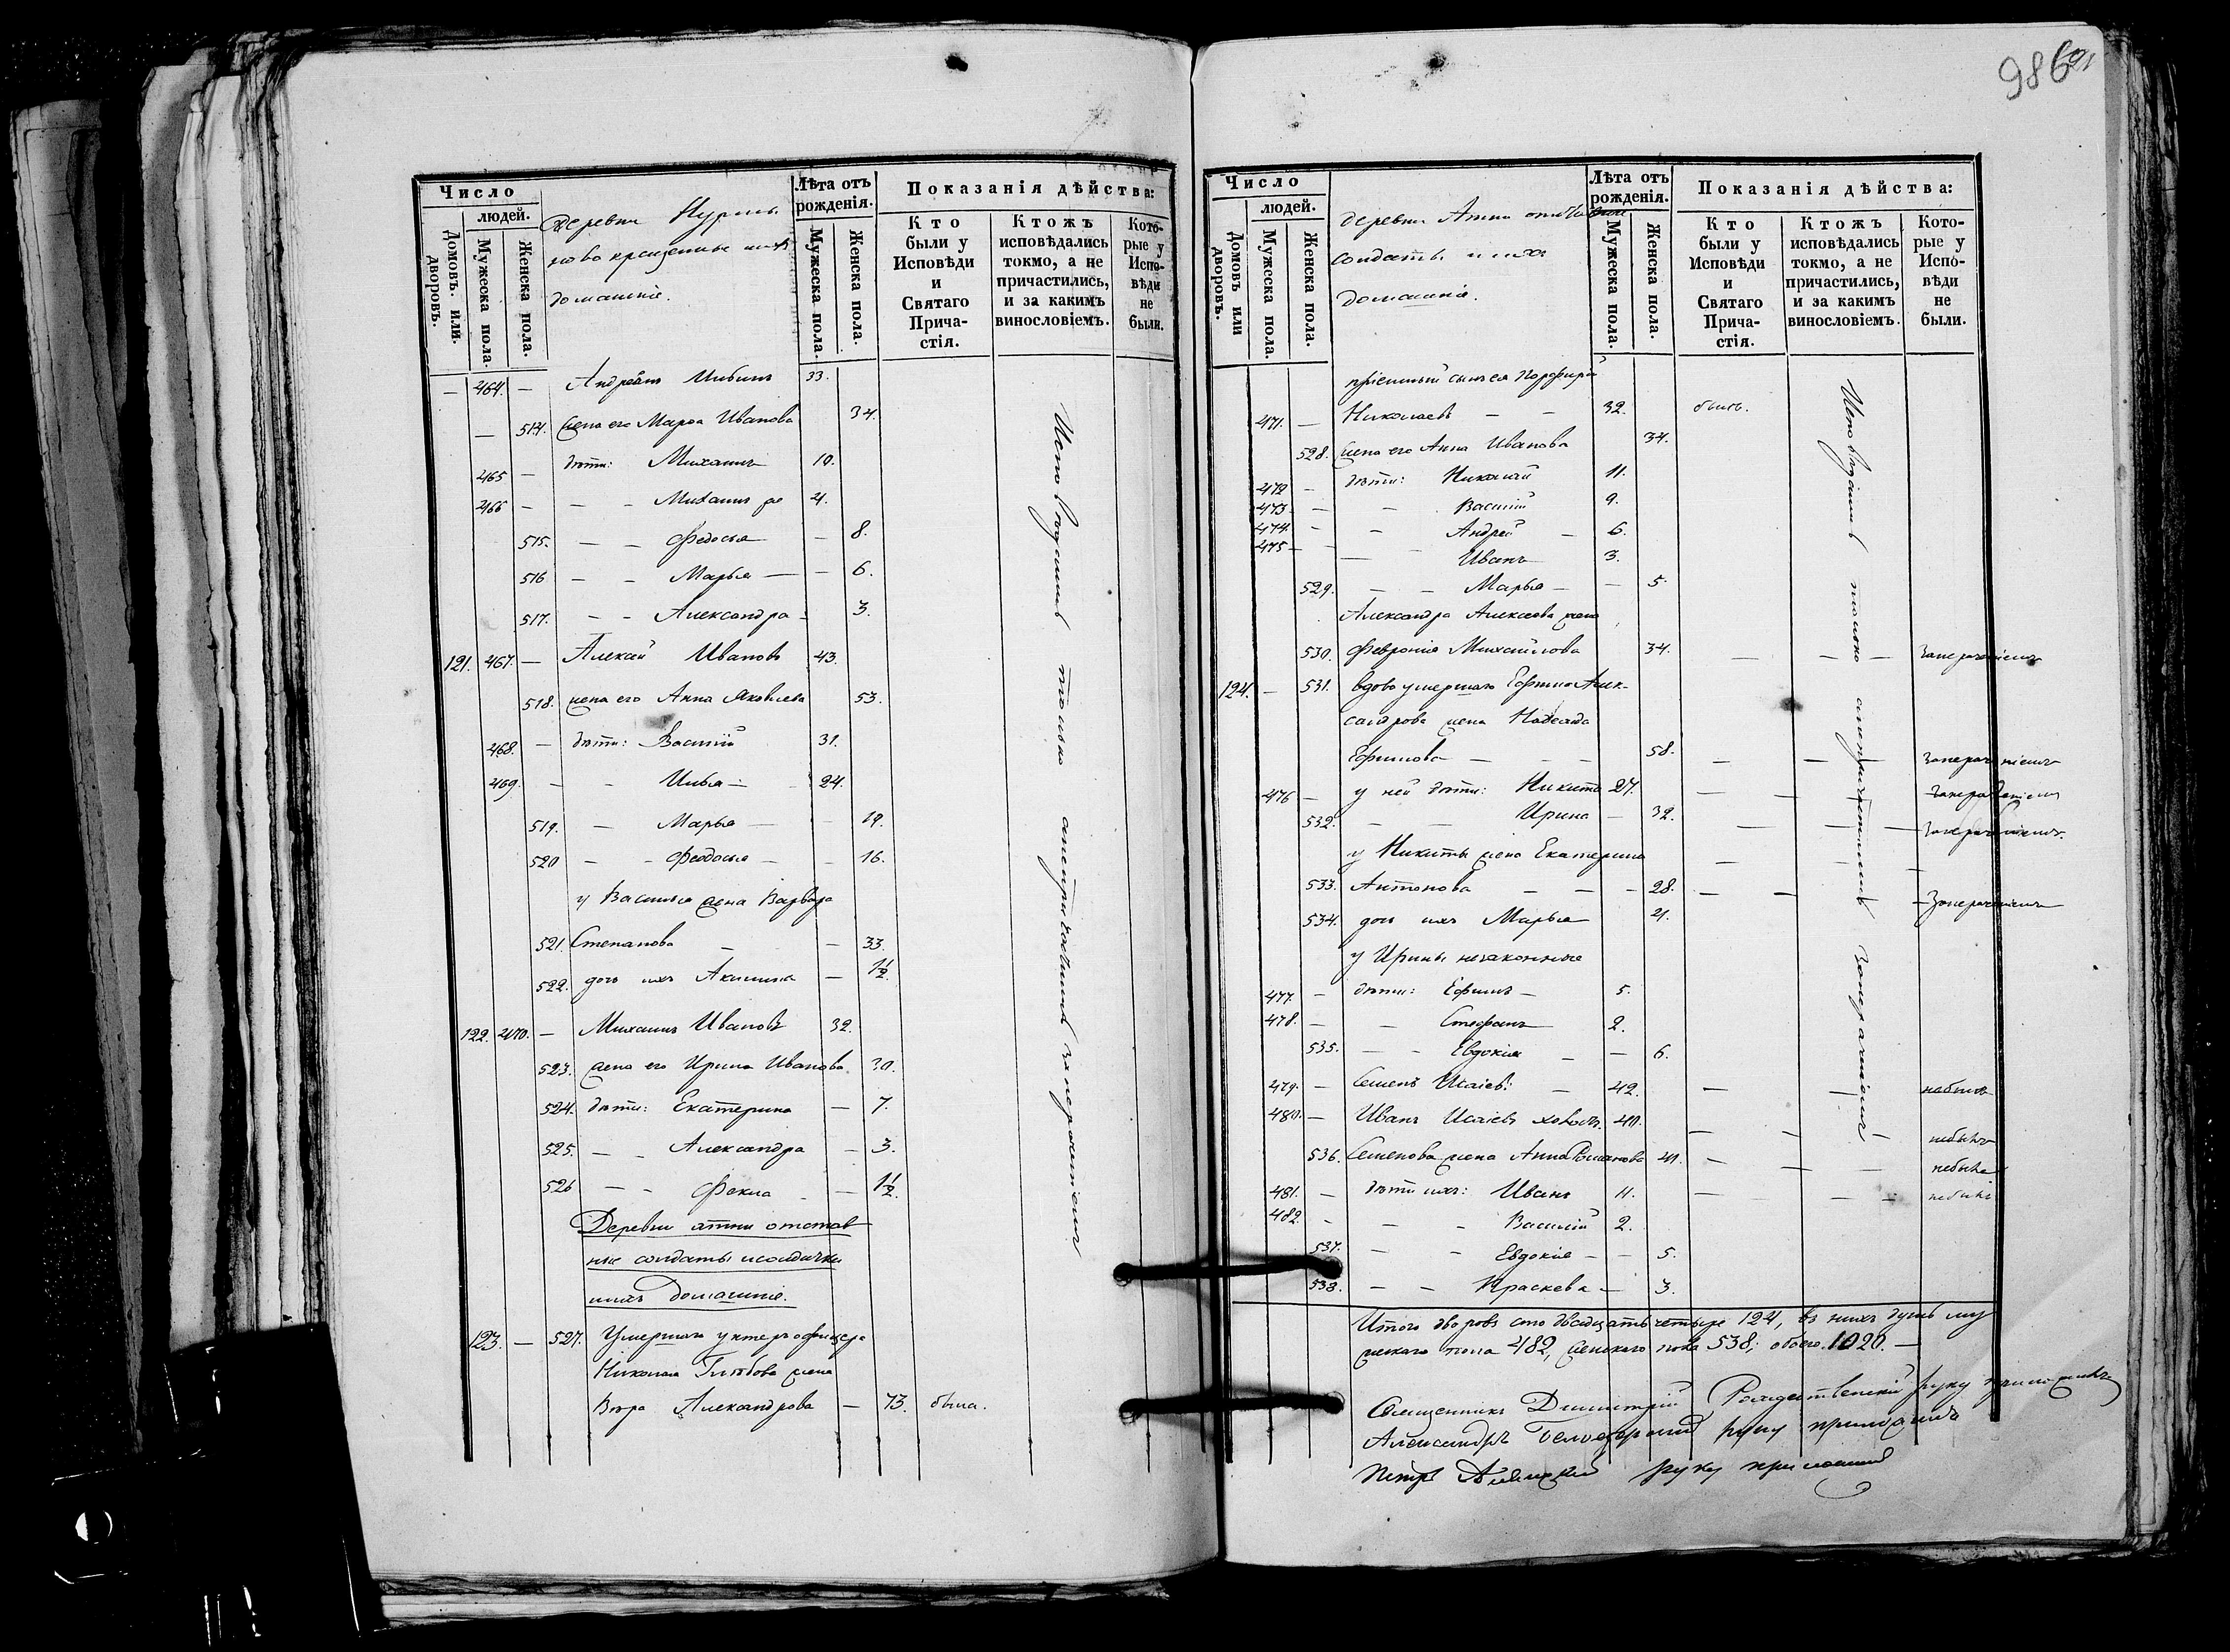 98
Число
людей.
Домовъ или дворовъ.
Мужеска пола.
Женска пола.
Деревни
новокрещенные ихъ
домашніе.
Лѣта отъ рожденія.
Мужеска пола.
Женска пола.
Показанія дѣйства:
Кто были у Исповѣди и Святаго Причастія.
Ктожъ исповѣдались токмо, а не причастились, и за какимъ винословіемъ.
Которые у Исповѣди не были.
— 464. — Андреянъ 33.
— 514. жена его Марѳа Иванова 34.
465 — дѣти: Михаилъ 10.
466 — — — Михаилъ же 4.
515. — — Федосья — 8.
516 — — Марья — — 6.
517. — — Александра — 3.
121. 467. — Алексѣй Ивановъ 43.
518. жена его Анна Яковлева 53.
468. — дѣти: Василій 31.
469. — — Илья — 24.
519. — Марья — — 19.
520 — — Феодосья — — 16.
у Василья жена Варвара
521. Степанова — — 33.
522. дочь ихъ Акилина — 1½.
122. 470. — Михаилъ Ивановъ 32.
523. жена его Ирина Иванова. 30.
524. дѣти: Екатерина — 7.
525. — — Александра — 3.
526 — — Фекла — — 1½.
Исповѣдались только
Деревни Атни отстав
ные солдаты и солдатки
ихъ домашніе.
123. — 527. Умершаго унтеръ офицера
Николая Глѣбова жена
Вѣра Александрова — 73. была.
Число
людей.
Домовъ или дворовъ.
Мужеска пола.
Женска пола.
деревни Атни отставные
солдаты и ихъ
домашніе.
Лѣта отъ рожденія.
Мужеска пола.
Женска пола.
Показанія дѣйства:
Кто были у Исповѣди и Святаго Причастія.
Ктожъ исповѣдались токмо, а не причастились, и за какимъ винословіемъ.
Которые у Исповѣди не были.
пріемный сынъ ея Порфирій
471. — Николаевъ — — 32. былъ.
528. жена его Анна Иванова 34.
472 — дѣти: Николай 11.
473. — — Василій 9.
474. — — Андрей — 6.
475 — — — Иванъ 3.
529. — — Марья — — 5.
Александра Алексѣева жена
530. Февронія Михайлова 34. — — —
124. — 531. вдова умершаго Ефима Алек-
сандрова жена Надежда
Ефимова — — — 58. — — —
476 — у ней дѣти: Никита 27. — —
532. — — Ирина — 32. — — —
у Никиты жена Екатерина — — —
533. Антонова — — — 28. — —
534. дочь ихъ Марья 4.
у Ирины незаконные
477. — дѣти: Ефимъ — 5.
478. — — Стефанъ 2.
535. — — Евдокія — — 6.
479. — Семенъ Исаіевъ — 42. — — небылъ
480. — Иванъ Исаіевъ холостъ. 40. — — небылъ
536. Семенова жена Анна Романова 40. — — — небыла
481. — дѣти ихъ: Иванъ 11. — — — небылъ
482. — — — Василій 2.
537. — — Евдокія — — 5.
538. — — Праскева — 3.
Исповѣдались только
Итого дворовъ сто двадцать четыре 124, въ нихъ душъ му
жескаго пола 482, женскаго пола 538; обоего 1020. —
Священникъ Димитрій Рождественскій руку приложилъ
Александръ руку приложилъ
Петръ руку приложилъ